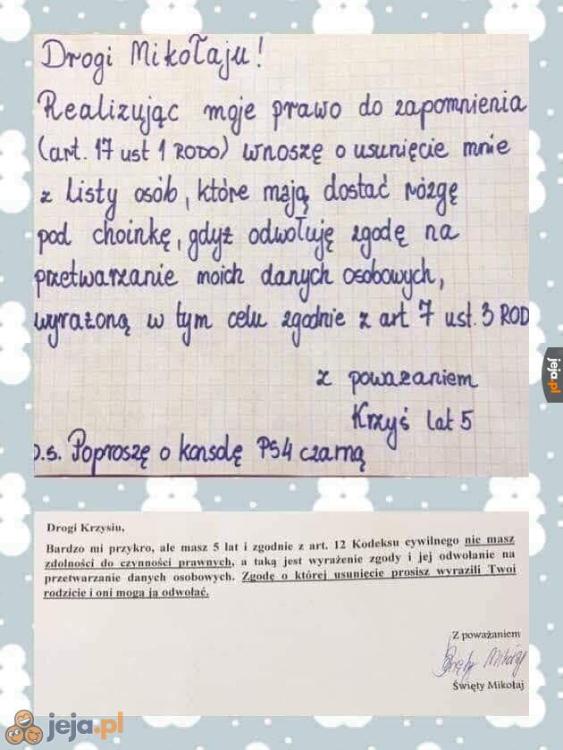 Drogi Mikołaju!
Realizując moje prawo do zapomnienia
(art. 17 ust 1 RODO) wnoszę o usunięcie mnie
z listy osób, które mają dostać rózgę
pod choinkę, gdyż odwołuję zgodę na
przetwarzanie moich danych osobowych,
wyrażoną w tym celu zgodnie z art 7 ust. 3 ROD
z poważaniem
Krzyś lat 5
p.s. Poproszę o konsolę PS4 czarną
jeja.pl
Drogi Krzysiu,
Bardzo mi przykro, ale masz 5 lat i zgodnie z art. 12 Kodeksu cywilnego nie masz
zdolności do czynności prawnych, a taką jest wyrażenie zgody i jej odwołanie na
przetwarzanie danych osobowych. Zgodę o której usunięcie prosisz wyrazili Twoi
rodzicie i oni mogą ją odwołać.
Z poważaniem
Święty Mikołaj
Święty Mikołaj
jeja.pl